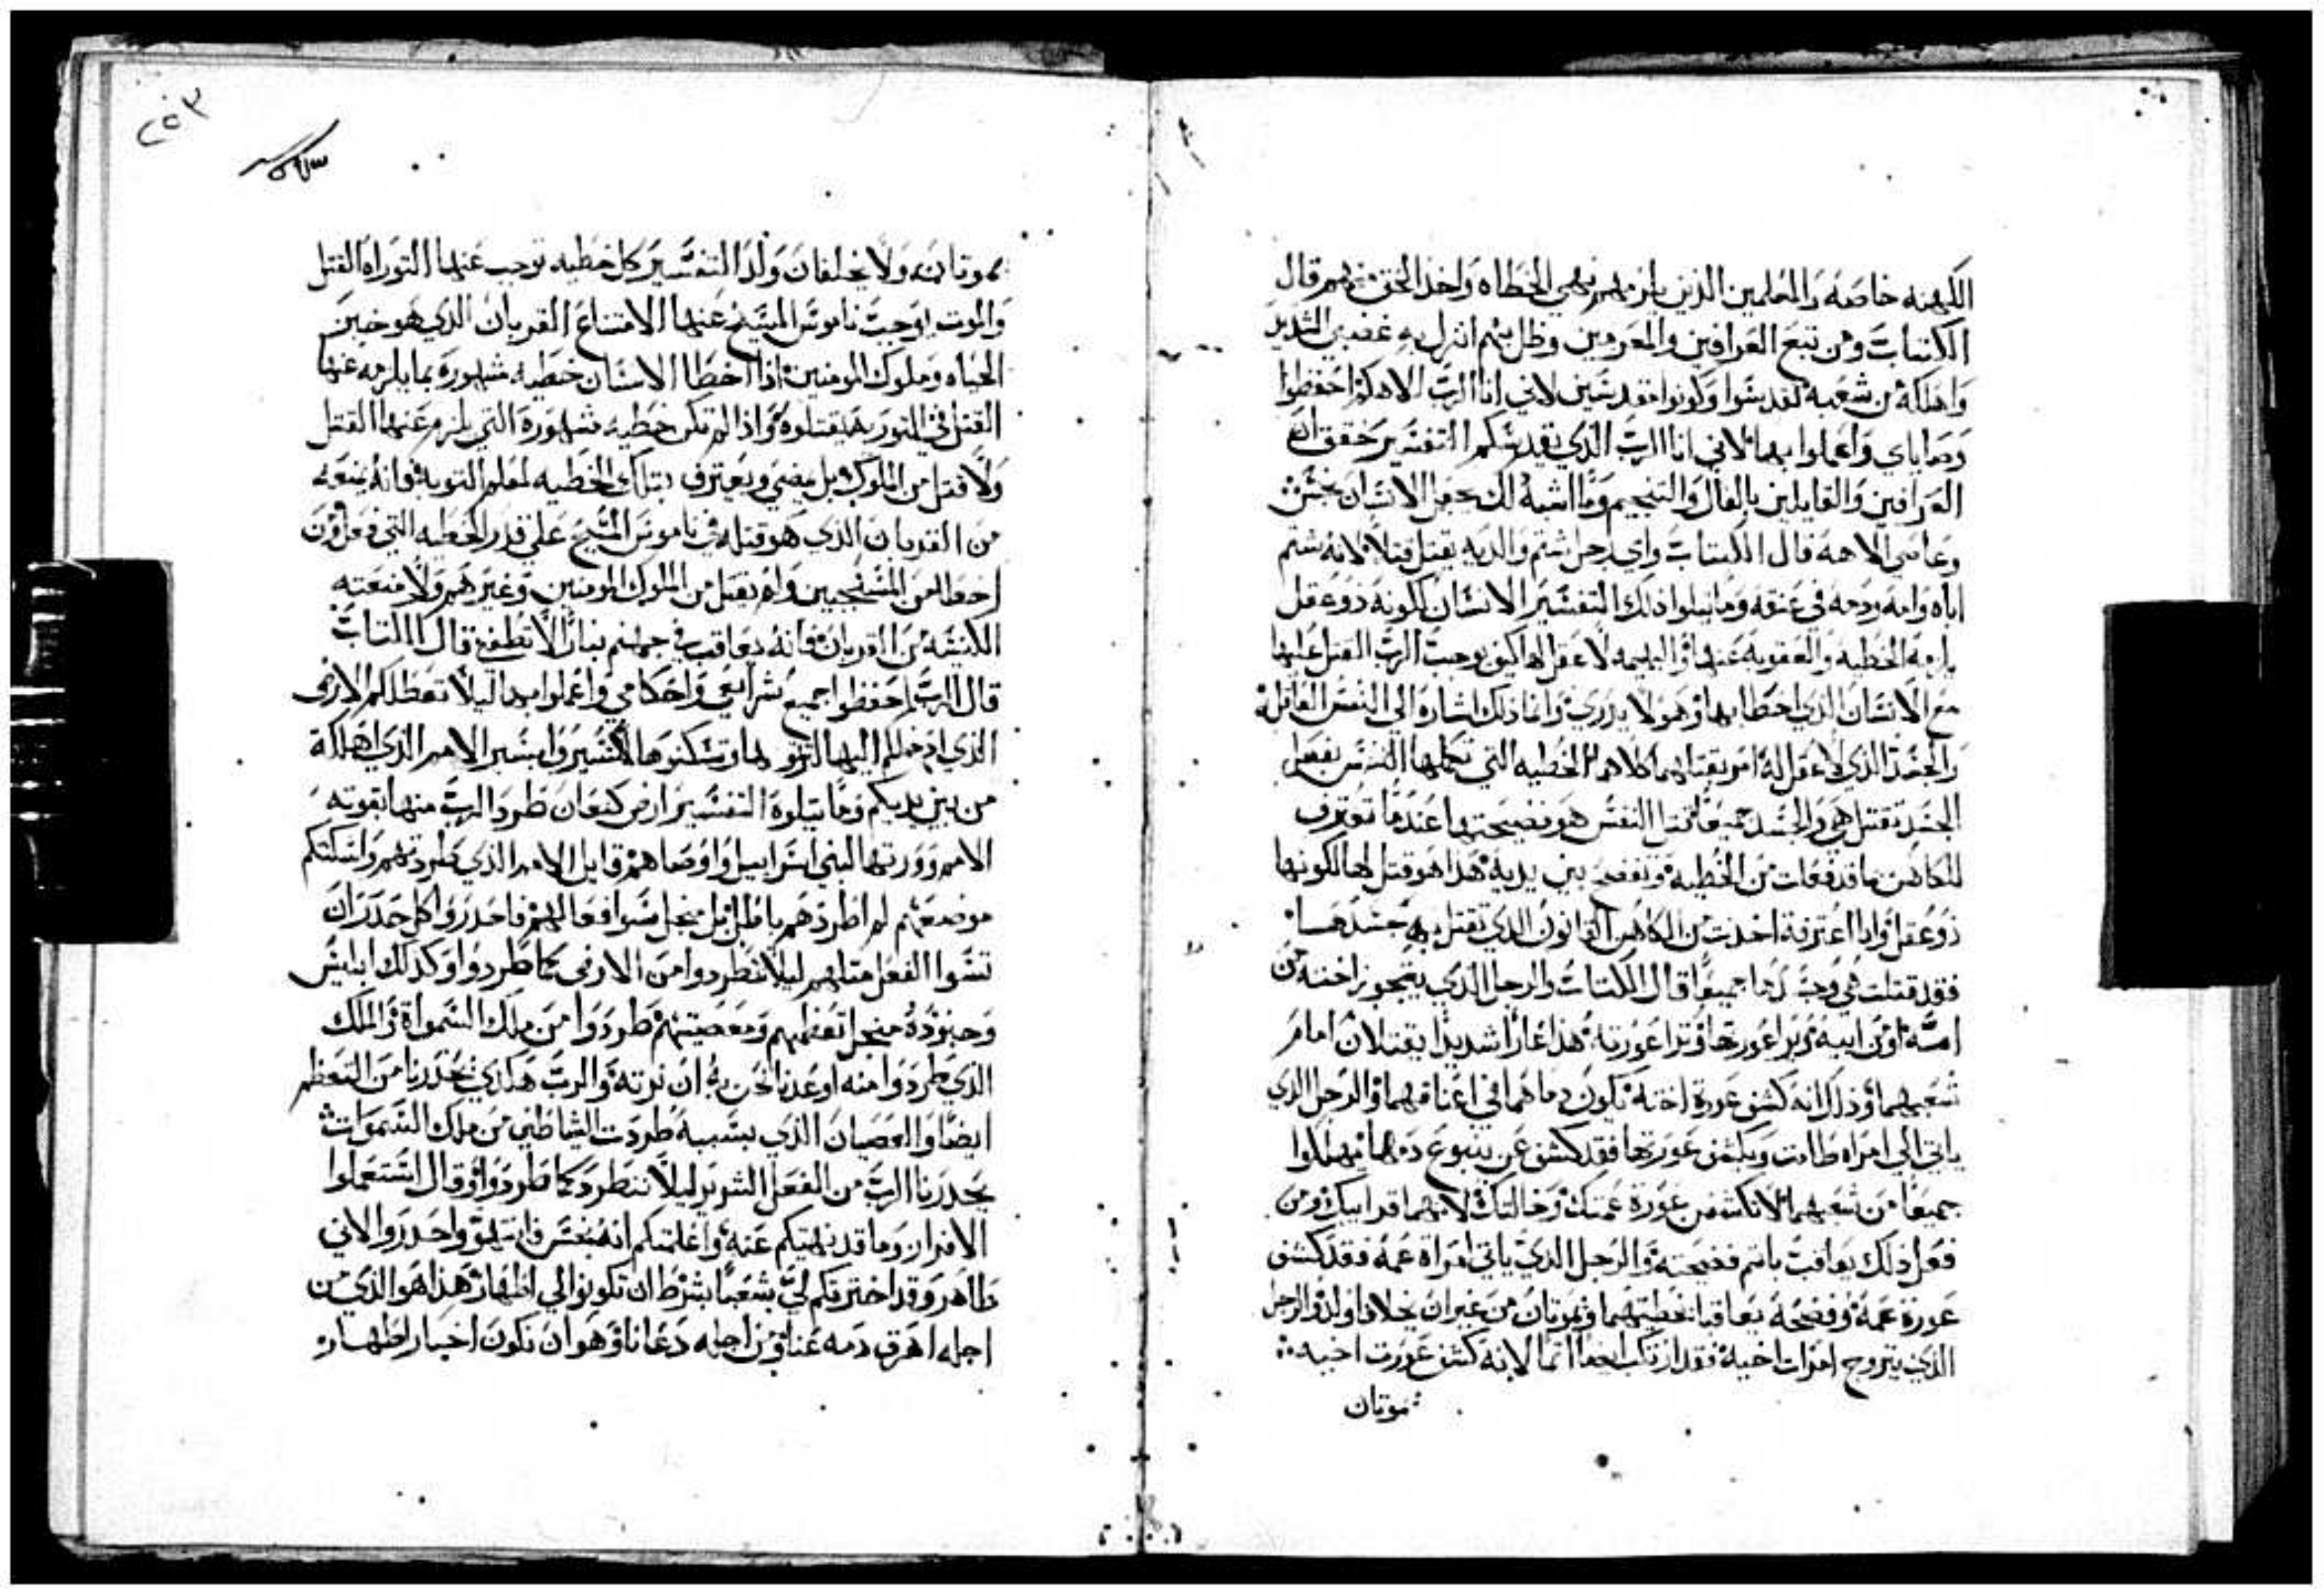 الكهنه خاصه والمعلمين الذين يلزمهم نهي الخطاه واخذ الحق منهم قال
الكتاب ومن تبع العرافين والمعزمين وظل بهم انزل به غضبي الشديد
واهلكه من شعبه تقدسوا وكونوا مقدسين لاني انا الرب الاهكم احفظوا
وصاياي واعملوا بها لاني انا الرب الذي يقدسكم التفسير حقق ان
العرافين والقايلين بالفال والتنجيم وما اشبه لك يجعل الانسان نجس
وعاصي الاهه قال الكتاب واي رجل شتم والديه يقتل قتلا لانه شتم
اباه وامه ودمه في عنقه وما يتلوا ذلك التفسير الانسان لكونه ذو عقل
يلزمه الخطيه والعقوبه عنها والبهيمه لا عقل لها كيف يوجب الرب القتل عليها
مع الانسان الذي اخطا بها وهو لا يدري وانما ذلك اشاره الي النفس العاقله
والجسد الذي لا عقل له امر بقتلهما كلاهما الخطيه التي تكملها النفس بفعل
الجسد تقتل هي والجسد جميعا قتل النفس هو فضيحتها عندما تعترف
للكاهن بما قد فعلت من الخطيه وتفضح بين يديه هذا هو قتل لها لكونها
ذو عقل واذا اعترفة اخدت من الكاهن القانون الذي تقتل به جسدها
فقد قتلت هي وجسدها جميعا قال الكتاب والرجل الذي يتجوز اخته من
امه او من ابيه ويرا عورتها وترا عورته هذا عارا شديدا يقتلان امام
شعبهما وذلك انه كشف عورة اخته تكون دماهما في اعناقهما والرجل الذي
ياتي الي امراه طامت ويكشف عورتها فقد كشف عن ينبوع دمها يهلكوا
جميعا من شعبهما لا تكشف عن عورة عمتك وخالتك لانهما قرايبك ومن
فعل ذلك يعاقب باثم فضيحته والرجل الذي ياتي امراة عمه فقد كشف
عورة عمه وفضحه يعاقبا بخطيتهما ويموتان من غير ان يخلفا اولاد والرجل
الذي يتزوج امرات اخيه فقد ارتكب اثما لانه كشف عورت اخيه
يموتان
٢٥٣
يموتان ولا يخلفان ولد التفسير كل خطيه توجب عنها التوراه القتل
والموت يوجب ناموس المسيح عنها الامتناع القربان الذي هو خبز
الحياه وملوك المومنين اذا اخطا الانسان خطيه مشهورة بما يلزمه عنها
القتل في التوريه يقتلوه واذا لم تكن خطيه مشهورة التي يلزم عنها القتل
ولا قتل من الملوك بل يمضي ويعترف بتلك الخطيه لمعلم التوبه فانه يمنعه
من القربان الذي هو قتله في ناموس المسيح علي قدر الخطيه التي فعل ومن
اخطا من المسيحيين ولم يقتل من الملوك المومنين وغيرهم ولا منعته
الكنيسه من القربان فانه يعاقب في جهنم بنار لا تطفي قال الكتاب
قال الرب احفظوا جميع شرايعي واحكامي واعملوا بها ليلا تعطلكم الارض
الذي ادخلكم اليها لترثوها وتسكنوها لا تسيروا بسير الامم الذي اهلكه
من بين يديكم وما يتلوه التفسير ارض كنعان طرد الرب منها بقوته
الامم وورثها لبني اسراييل واوصاهم قايل الامم الذي طردتهم واسكنتكم
موضعهم لم اطردهم باطل بل من اجل سوا فعالهم فاحدروا كل حدر ان
تسوا الفعل مثلهم ليلا تطردوا من الارض كما طردوا وكذلك ابليس
وجنوده من اجل تعظمهم ومعصيتهم طردوا من ملك السمواة والملك
الذي طردوا منه اوعدنا نحن به ان نرته والرب هكذي يحدرنا من التعظم
ايضا والعصيان الذي بسببه طردت الشياطين من ملك السموات
يحدرنا الرب من الفعل الشرير ليلا ننطرد كما طردوا وقال استعملوا
الافراز وما قد نهيتكم عنه واعلمتكم انه نجس فانتهوا واحدروا لاني
طاهر وقد اخترتكم لي شعبا بشرط ان تكونوا لي اطهار هذا هو الذي من
اجله اهرق دمه عنا ومن اجله دعانا وهو ان نكون اخيار اطهار